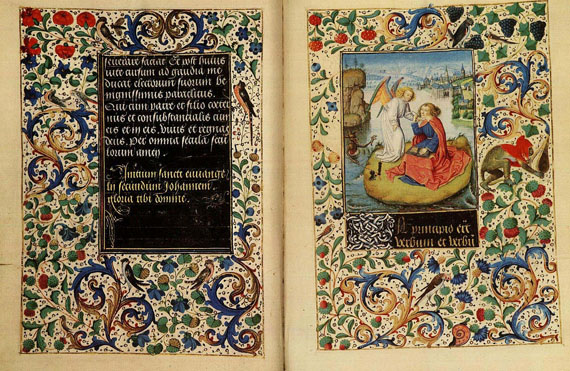 feliciare faciat Et post huius
vite cursum ad gaudia me
ducat electorum suorum be
nignissimus paraclitus.
Qui cum patre et filio coeter
nus et consubstancialis cum
eis et in eis. viuis et regnas
deus. Per omnia secula secu
lorum amen.
Inicium sancti euuange
lii secundum Johannem.
gloria tibi domine.
In principio erat
verbum et verbum